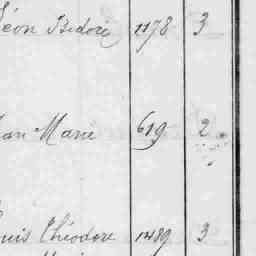 Léon Isidore 1178 3
Jean Marie 619 2
Louis Théodore 1489 3